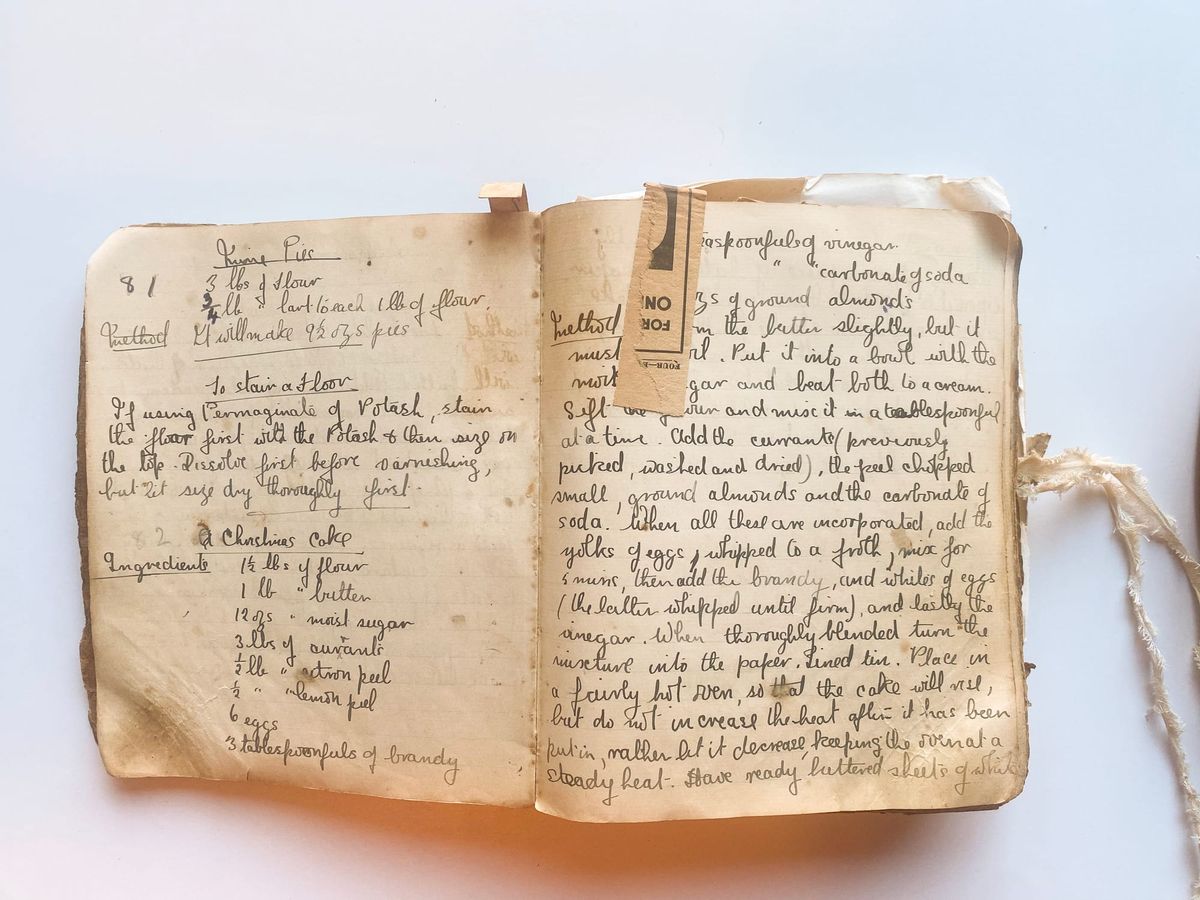 Pies
81
3 lbs of flour
3/4 lb " lard to each 1 lb of flour
Method It will make 9½ ozs pies
To stain a Floor
If using Permaginate of Potash, stain
the floor first with the Potash & then size on
the top. Dissolve first before varnishing,
but let size dry thoroughly first.
82. A Christmas Cake
Ingredients 1½ lbs of flour
1 lb " butter
12 ozs " moist sugar
3 lbs of currants
½ lb " citron peel
½ " " lemon peel
6 eggs
3 tablespoonfuls of brandy
teaspoonfuls of vinegar.
" " carbonate of soda
ozs of ground almonds
Method the butter slightly, but it
must . Put it into a bowl with the
and beat both to a cream.
Sift and mix it in a tablespoonful
at a time. Add the currants (previously
picked, washed and dried), the peel chopped
small, ground almonds and the carbonate of
soda. When all these are incorporated, add the
yolks of eggs, whipped to a froth, mix for
5 mins, then add the brandy, and whites of eggs
(the latter whipped until firm), and lastly the
vinegar. When thoroughly blended turn the
mixture into the paper. lined tin. Place in
a fairly hot oven, so that the cake will rise,
but do not increase the heat after it has been
put in, rather let it decrease, keeping the oven at a
steady heat. Have ready buttered sheets of white
FOR
ON
FOUR-E